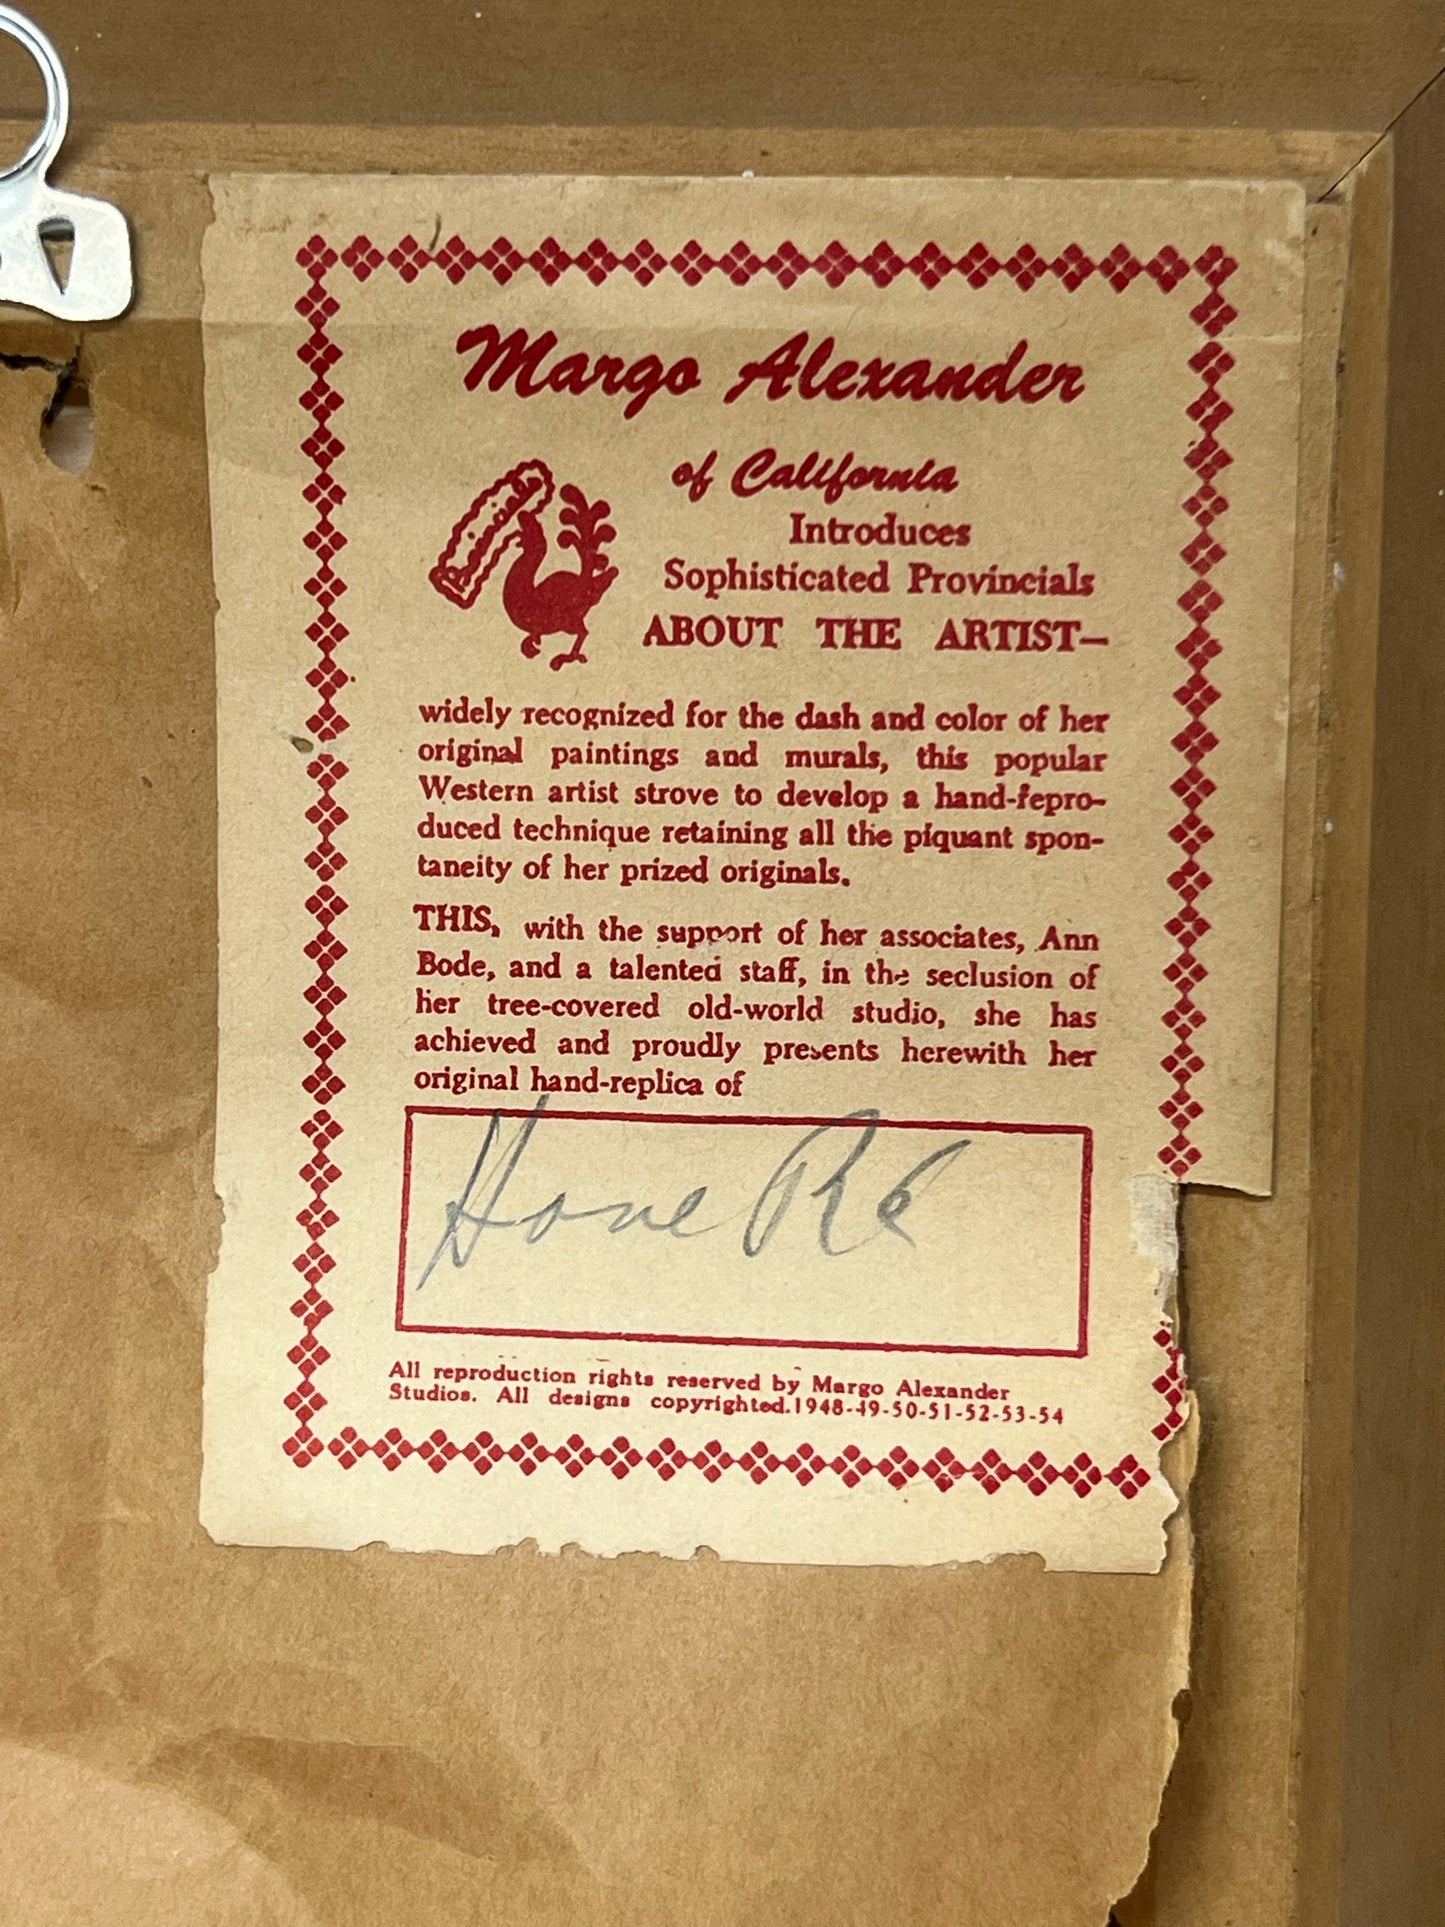 Margo Alexander
of California
Introduces
Sophisticated Provincials
ABOUT THE ARTIST—
widely recognized for the dash and color of her
original paintings and murals, this popular
Western artist strove to develop a hand-repro-
duced technique retaining all the piquant spon-
taneity of her prized originals.
THIS, with the support of her associates, Ann
Bode, and a talented staff, in the seclusion of
her tree-covered old-world studio, she has
achieved and proudly presents herewith her
original hand-replica of
All reproduction rights reserved by Margo Alexander
Studios. All designs copyrighted.1948-49-50-51-52-53-54